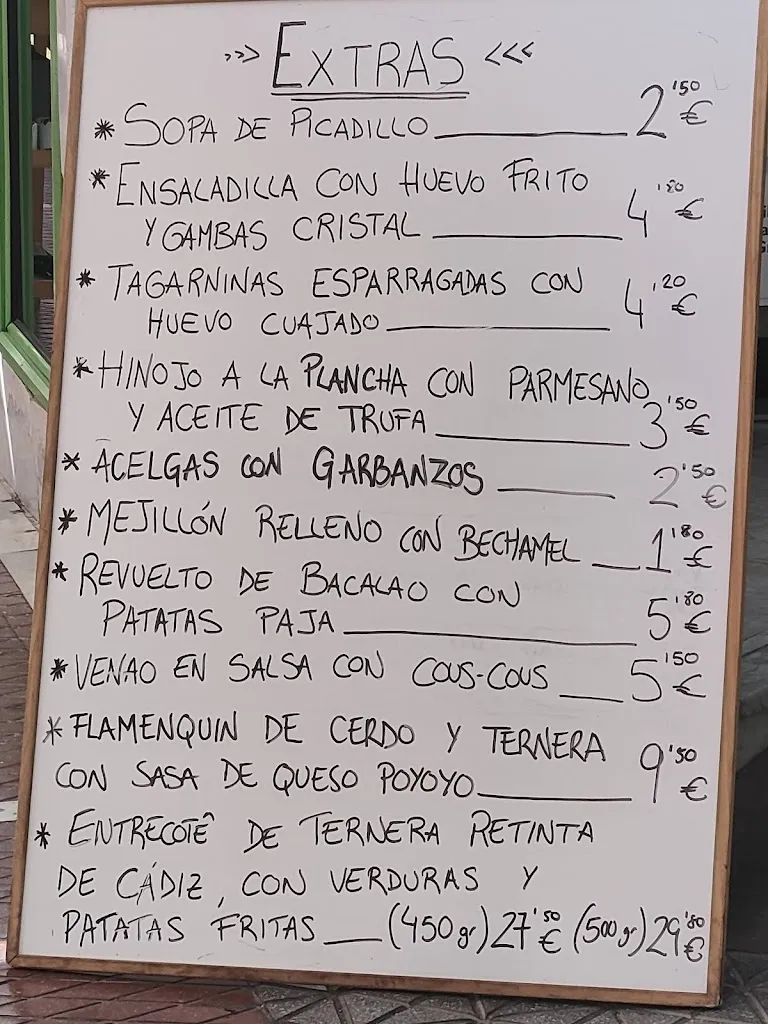 »› EXTRAS ‹‹‹
* SOPA DE PICADILLO 2'50 €
* ENSALADILLA CON HUEVO FRITO
Y GAMBAS CRISTAL 4'80 €
* TAGARNINAS ESPARRAGADAS CON
HUEVO CUAJADO 4'20 €
* HINOJO A LA PLANCHA CON PARMESANO
Y ACEITE DE TRUFA 3'50 €
* ACELGAS CON GARBANZOS 2'50 €
* MEJILLÓN RELLENO CON BECHAMEL 1'80 €
* REVUELTO DE BACALAO CON
PATATAS PAJA 5'80 €
* VENAO EN SALSA CON COUS-COUS 5'50 €
* FLAMENQUIN DE CERDO Y TERNERA
CON SASA DE QUESO POYOYO 9'50 €
* ENTRECOTÊ DE TERNERA RETINTA
DE CÁDIZ, CON VERDURAS Y
PATATAS FRITAS (450 gr) 27'50 € (500 gr) 29'80 €